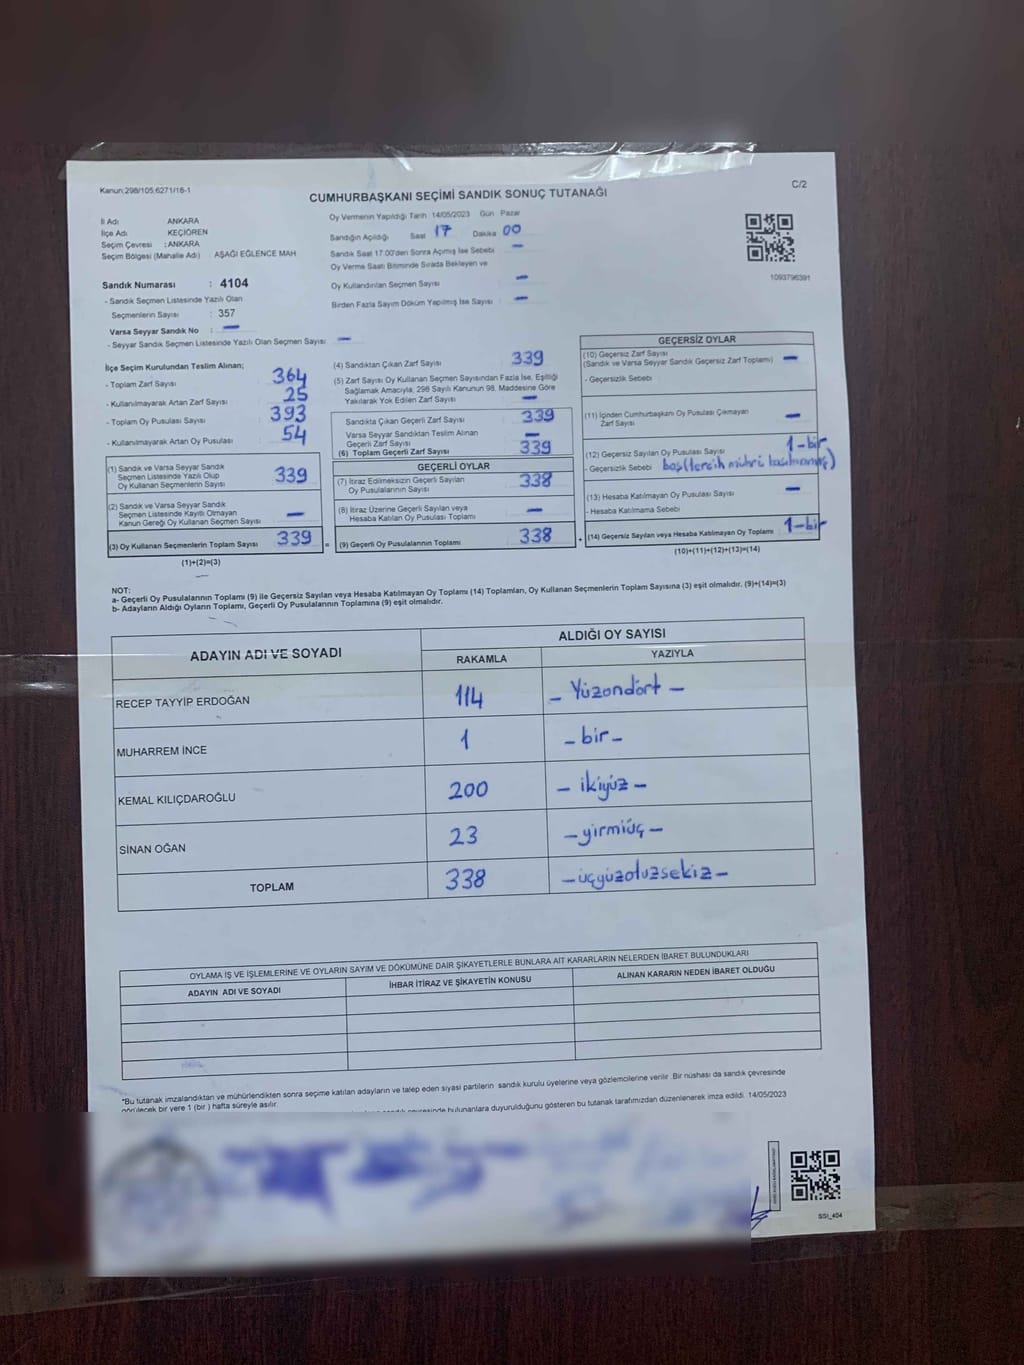 Kanun:298/105,6271/16-1
CUMHURBAŞKANI SEÇİMİ SANDIK SONUÇ TUTANAĞI
C/2
İl Adı ANKARA
İlçe Adı KEÇİÖREN
Seçim Çevresi : ANKARA
Seçim Bölgesi (Mahalle Adı) : AŞAĞI EĞLENCE MAH
Oy Vermenin Yapıldığı Tarih :14/05/2023 Gün Pazar
Sandığın Açıldığı Saat 17 Dakika 00
Sandık Saat 17.00'den Sonra Açımış İse Sebebi —
Oy Verme Saati Bitiminde Sırada Bekleyen ve
Oy Kullandırılan Seçmen Sayısı —
Birden Fazla Sayım Döküm Yapılmış İse Sayısı —
1093796391
Sandık Numarası : 4104
- Sandık Seçmen Listesinde Yazılı Olan
Seçmenlerin Sayısı : 357
Varsa Seyyar Sandık No : —
- Seyyar Sandık Seçmen Listesinde Yazılı Olan Seçmen Sayısı : —
İlçe Seçim Kurulundan Teslim Alınan;
- Toplam Zarf Sayısı 364
- Kullanılmayarak Artan Zarf Sayısı 25
- Toplam Oy Pusulası Sayısı 393
- Kullanılmayarak Artan Oy Pusulası 54
(1) Sandık ve Varsa Seyyar Sandık
Seçmen Listesinde Yazılı Olup
Oy Kullanan Seçmenlerin Sayısı 339
(2) Sandık ve Varsa Seyyar Sandık
Seçmen Listesinde Kayıtlı Olmayan
Kanun Gereği Oy Kullanan Seçmen Sayısı —
(3) Oy Kullanan Seçmenlerin Toplam Sayısı 339
(1)+(2)=(3)
(4) Sandıktan Çıkan Zarf Sayısı 339
(5) Zarf Sayısı Oy Kullanan Seçmen Sayısından Fazla İse, Eşitliği
Sağlamak Amacıyla, 298 Sayılı Kanunun 98. Maddesine Göre
Yakılarak Yok Edilen Zarf Sayısı —
Sandıkta Çıkan Geçerli Zarf Sayısı 339
Varsa Seyyar Sandıktan Teslim Alınan
Geçerli Zarf Sayısı —
(6) Toplam Geçerli Zarf Sayısı 339
GEÇERLİ OYLAR
(7) İtiraz Edilmeksizin Geçerli Sayılan
Oy Pusulalarının Sayısı 338
(8) İtiraz Üzerine Geçerli Sayılan veya
Hesaba Katılan Oy Pusulası Toplamı —
= (9) Geçerli Oy Pusulalarının Toplamı 338
GEÇERSİZ OYLAR
(10) Geçersiz Zarf Sayısı
(Sandık ve Varsa Seyyar Sandık Geçersiz Zarf Toplamı) —
- Geçersizlik Sebebi
(11) İçinden Cumhurbaşkanı Oy Pusulası Çıkmayan
Zarf Sayısı —
(12) Geçersiz Sayılan Oy Pusulası Sayısı 1-bir
- Geçersizlik Sebebi boş (tercih mührü basılmamış)
(13) Hesaba Katılmayan Oy Pusulası Sayısı —
- Hesaba Katılmama Sebebi
+ (14) Geçersiz Sayılan veya Hesaba Katılmayan Oy Toplamı 1-bir
(10)+(11)+(12)+(13)=(14)
NOT:
a- Geçerli Oy Pusulalarının Toplamı (9) ile Geçersiz Sayılan veya Hesaba Katılmayan Oy Toplamı (14) Toplamları, Oy Kullanan Seçmenlerin Toplam Sayısına (3) eşit olmalıdır. (9)+(14)=(3)
b- Adayların Aldığı Oyların Toplamı, Geçerli Oy Pusulalarının Toplamına (9) eşit olmalıdır.
ADAYIN ADI VE SOYADI
ALDIĞI OY SAYISI
RAKAMLA YAZIYLA
RECEP TAYYİP ERDOĞAN 114 - Yüzondört -
MUHARREM İNCE 1 - bir -
KEMAL KILIÇDAROĞLU 200 - ikiyüz -
SİNAN OĞAN 23 - yirmiüç -
TOPLAM 338 - üçyüzotuzsekiz -
OYLAMA İŞ VE İŞLEMLERİNE VE OYLARIN SAYIM VE DÖKÜMÜNE DAİR ŞİKAYETLERLE BUNLARA AİT KARARLARIN NELERDEN İBARET BULUNDUKLARI
ADAYIN ADI VE SOYADI İHBAR İTİRAZ VE ŞİKAYETİN KONUSU ALINAN KARARIN NEDEN İBARET OLDUĞU
*Bu tutanak imzalandıktan ve mühürlendikten sonra seçime katılan adayların ve talep eden siyasi partilerin sandık kurulu üyelerine veya gözlemcilerine verilir. Bir nüshası da sandık çevresinde
görülecek bir yere 1 (bir) hafta süreyle asılır.
bulunanlara duyurulduğunu gösteren bu tutanak tarafımızdan düzenlenerek imza edildi. 14/05/2023
SSI_404